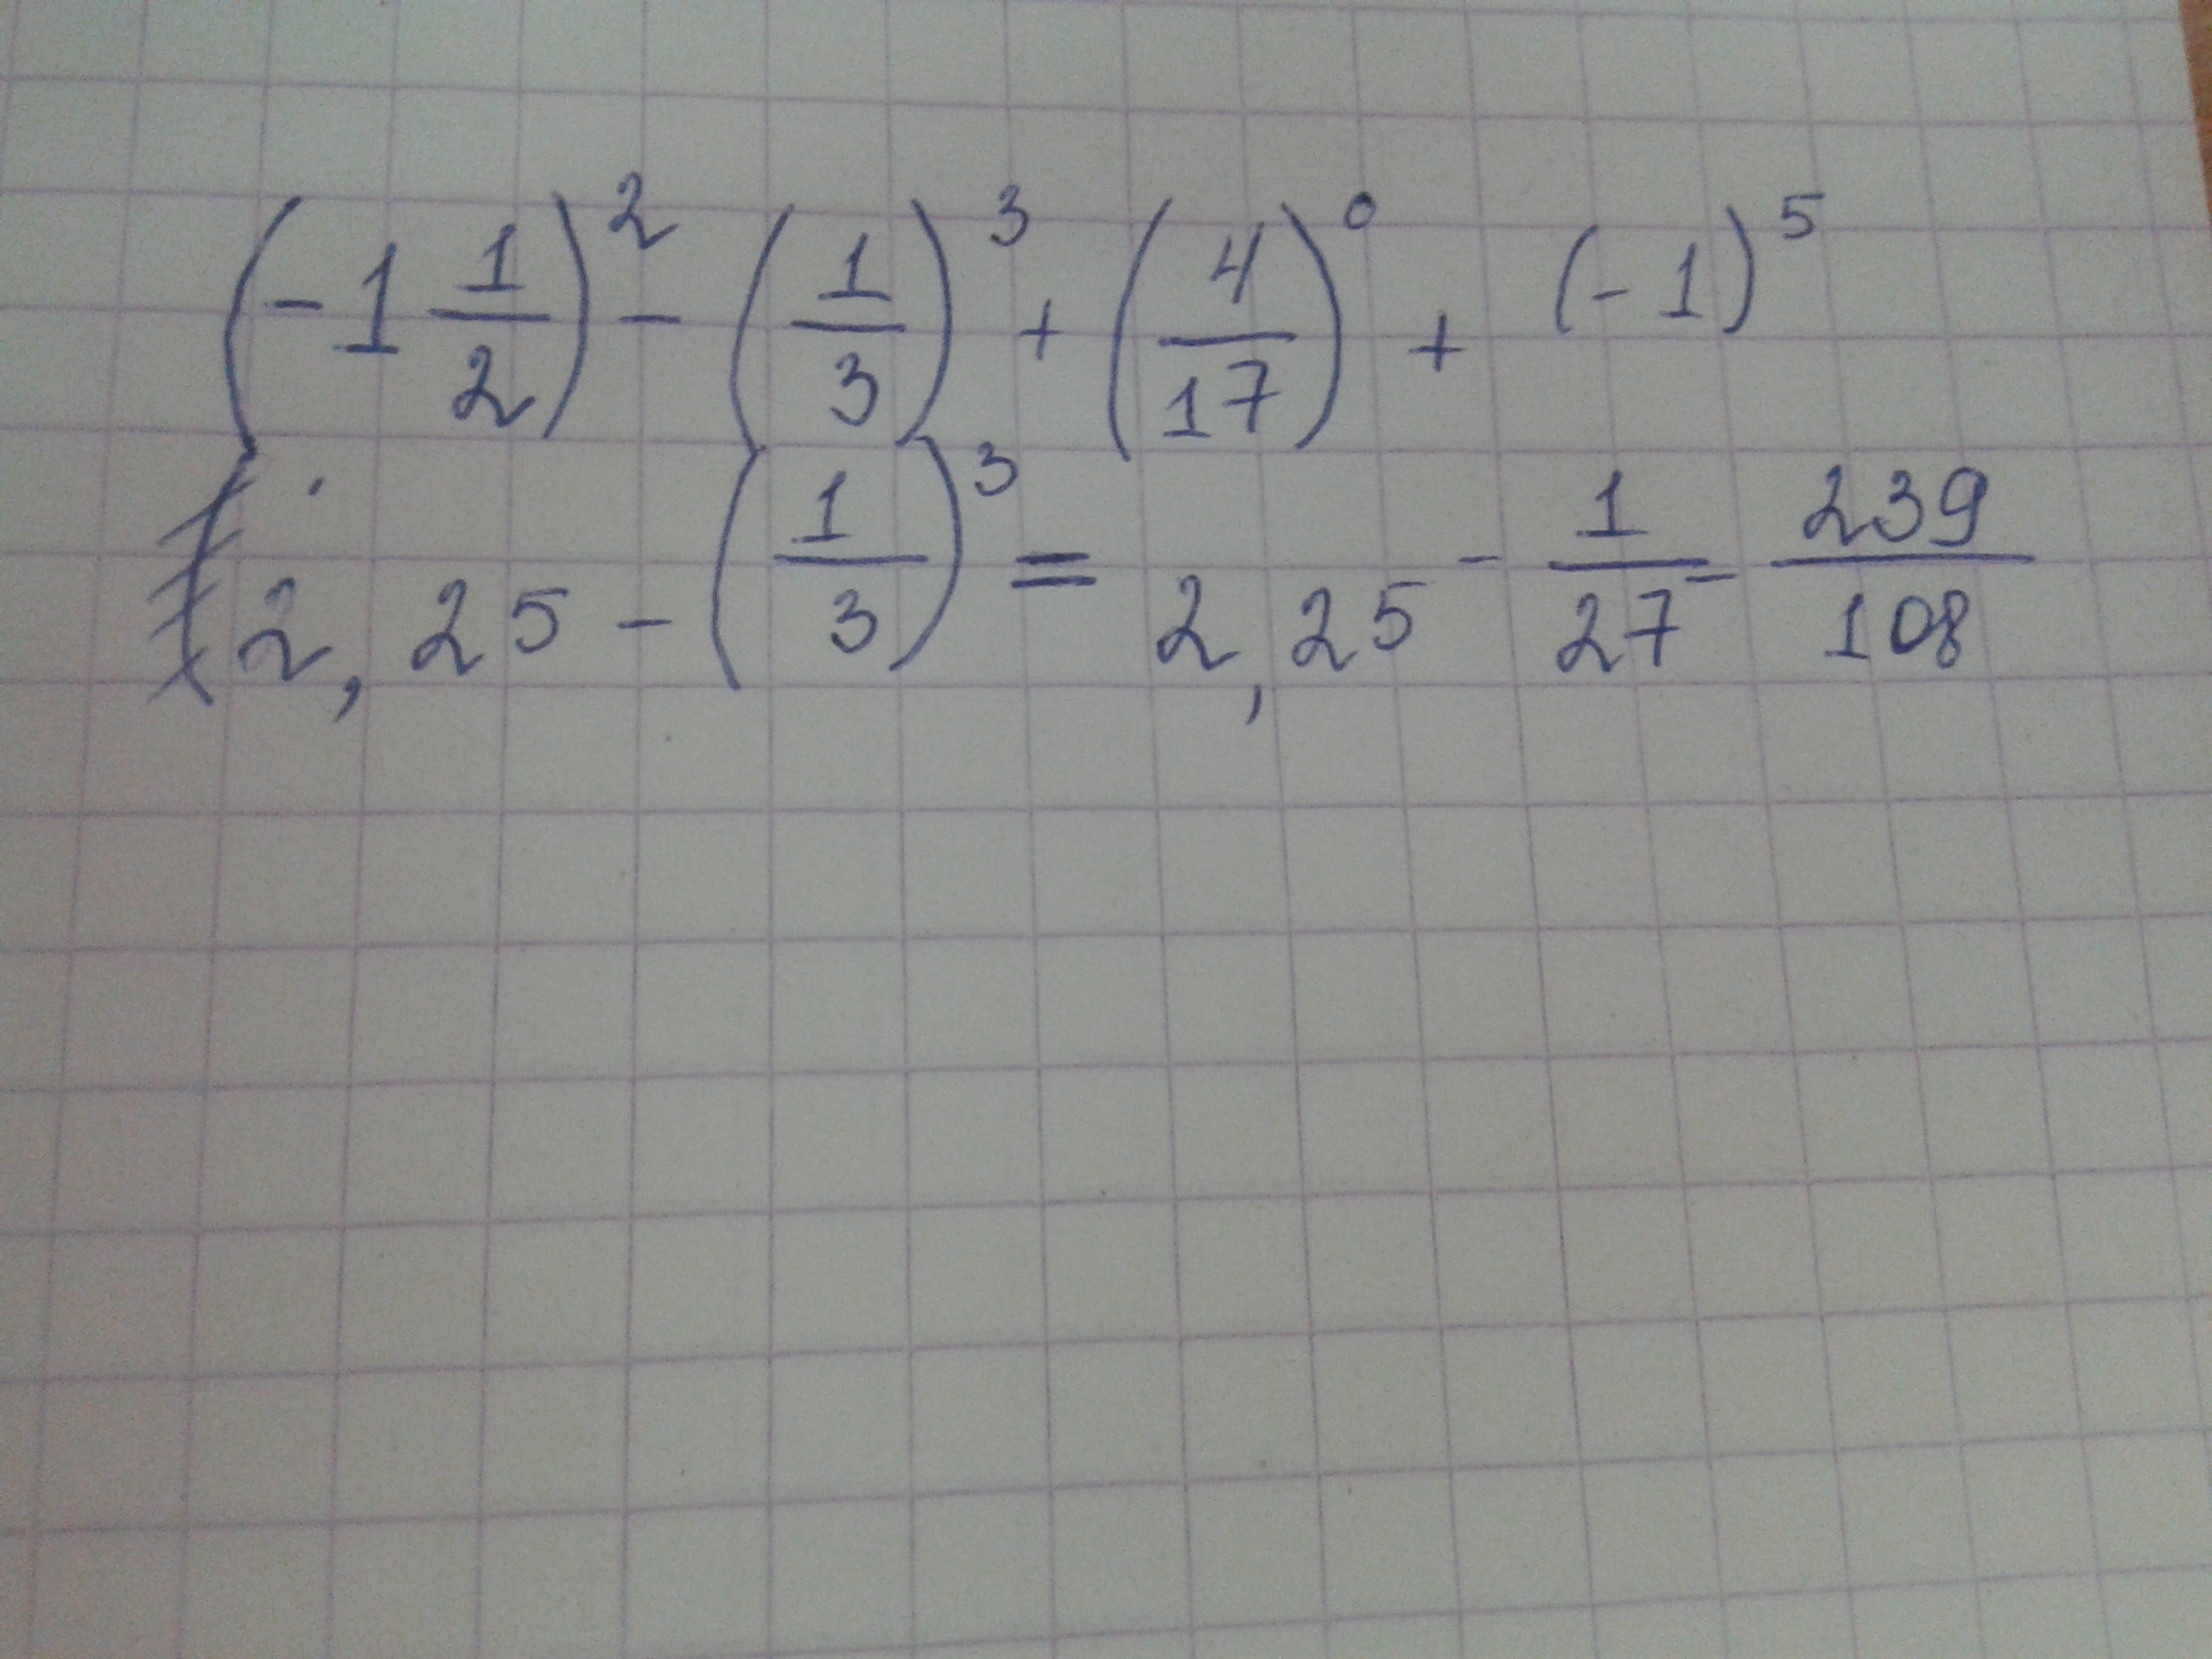 (-1 1/2)² - (1/3)³ + (4/17)⁰ + (-1)⁵
2,25 - (1/3)³ = 2,25 - 1/27 - 239/108